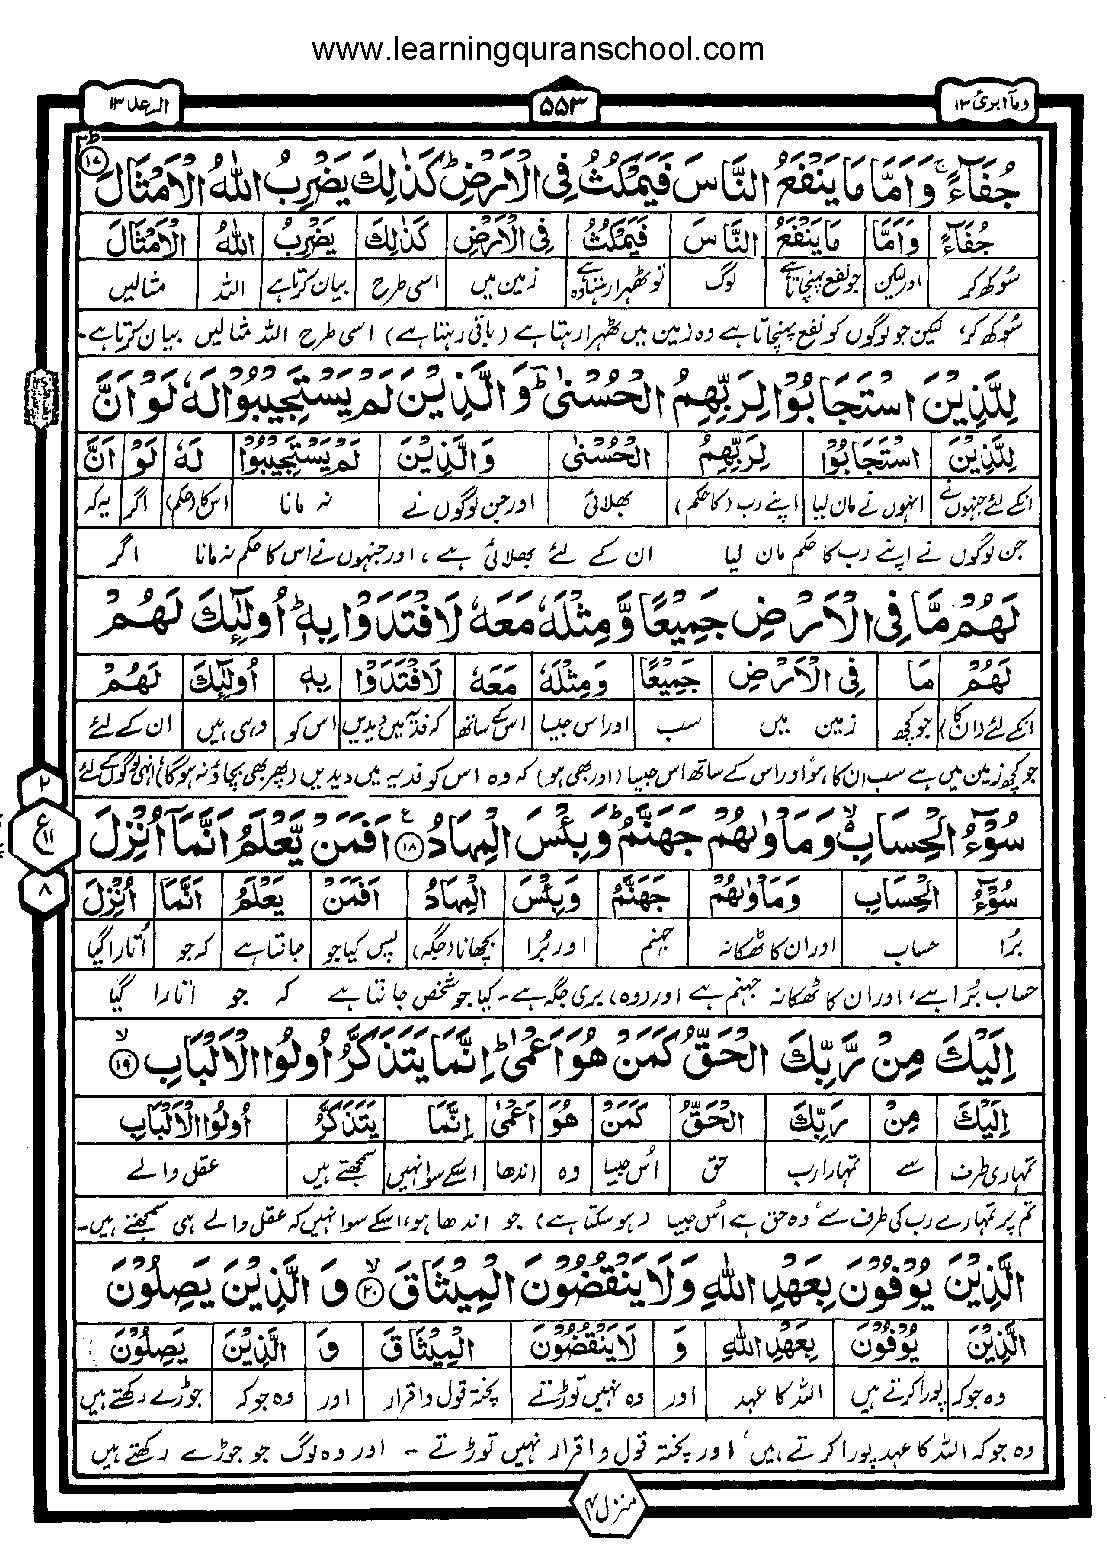 www.learningquranschool.com
وما ابرئ ١٣ ۵۵۳ الرعد ١٣
جُفَآءً ۚ وَاَمَّا مَا يَنْفَعُ النَّاسَ فَيَمْكُثُ فِى الْاَرْضِ ؕ كَذٰلِكَ يَضْرِبُ اللّٰهُ الْاَمْثَالَ ؕ ﴿۱۷﴾
جُفَآءً وَاَمَّا مَا يَنْفَعُ النَّاسَ فَيَمْكُثُ فِى الْاَرْضِ كَذٰلِكَ يَضْرِبُ اللّٰهُ الْاَمْثَالَ
سُوکھ کر اور لیکن جو نفع پہنچاتا ہے لوگ تو ٹھہرا رہتا ہے وہ زمین میں اسی طرح بیان کرتا ہے اللہ مثالیں
سُوکھ کر، لیکن جو لوگوں کو نفع پہنچاتا ہے وہ زمین میں ٹھہرا رہتا ہے (باقی رہتا ہے) اسی طرح اللہ مثالیں بیان کرتا ہے۔
لِلَّذِيْنَ اسْتَجَابُوْا لِرَبِّهِمُ الْحُسْنٰى ؕ وَالَّذِيْنَ لَمْ يَسْتَجِيْبُوْا لَهٗ لَوْ اَنَّ
لِلَّذِيْنَ اسْتَجَابُوْا لِرَبِّهِمُ الْحُسْنٰى وَالَّذِيْنَ لَمْ يَسْتَجِيْبُوْا لَهٗ لَوْ اَنَّ
انکے لئے جنہوں نے انہوں نے مان لیا اپنے رب (کا حکم) بھلائی اور جن لوگوں نے نہ مانا اس کا (حکم) اگر یہ کہ
جن لوگوں نے اپنے رب کا حکم مان لیا ان کے لئے بھلائی ہے، اور جنہوں نے اس کا حکم نہ مانا اگر
لَهُمْ مَّا فِى الْاَرْضِ جَمِيْعًا وَّمِثْلَهٗ مَعَهٗ لَافْتَدَوْا بِهٖ ؕ اُولٰٓئِكَ لَهُمْ
لَهُمْ مَا فِى الْاَرْضِ جَمِيْعًا وَمِثْلَهٗ مَعَهٗ لَافْتَدَوْا بِهٖ اُولٰٓئِكَ لَهُمْ
انکے لئے (ان کا) جو کچھ زمین میں سب اور اس جیسا اس کے ساتھ کہ فدیہ میں دیدیں اس کو وہی ہیں ان کے لئے
جو کچھ زمین میں ہے سب ان کا ہو اور اس کے ساتھ اس جیسا (اور بھی ہو) کہ وہ اس کو فدیہ میں دیدیں (پھر بھی بچاؤ نہ ہوگا) انہی لوگوں کے لئے
سُوْٓءُ الْحِسَابِ ۙ وَمَاْوٰىهُمْ جَهَنَّمُ ؕ وَبِئْسَ الْمِهَادُ ﴿۱۸﴾ اَفَمَنْ يَّعْلَمُ اَنَّمَآ اُنْزِلَ
سُوْٓءُ الْحِسَابِ وَمَاْوٰىهُمْ جَهَنَّمُ وَبِئْسَ الْمِهَادُ اَفَمَنْ يَعْلَمُ اَنَّمَا اُنْزِلَ
بُرا حساب اور ان کا ٹھکانہ جہنم اور بُرا بچھانا (جگہ) پس کیا جو جانتا ہے کہ جو اُتارا گیا
حساب بُرا ہے، اور ان کا ٹھکانہ جہنم ہے اور (وہ) بری جگہ ہے۔ کیا جو شخص جانتا ہے کہ جو اتارا گیا
اِلَيْكَ مِنْ رَّبِّكَ الْحَقُّ كَمَنْ هُوَ اَعْمٰى ؕ اِنَّمَا يَتَذَكَّرُ اُولُوا الْاَلْبَابِ ۙ ﴿۱۹﴾
اِلَيْكَ مِنْ رَبِّكَ الْحَقُّ كَمَنْ هُوَ اَعْمٰى اِنَّمَا يَتَذَكَّرُ اُولُوا الْاَلْبَابِ
تمہاری طرف سے تمہارا رب حق اُس جیسا وہ اندھا اسکے سوا نہیں سمجھتے ہیں عقل والے
تم پر تمہارے رب کی طرف سے، وہ حق ہے اُس جیسا (ہو سکتا ہے) جو اندھا ہو، اسکے سوا نہیں کہ عقل والے ہی سمجھتے ہیں۔
الَّذِيْنَ يُوْفُوْنَ بِعَهْدِ اللّٰهِ وَلَا يَنْقُضُوْنَ الْمِيْثَاقَ ۙ ﴿۲۰﴾ وَ الَّذِيْنَ يَصِلُوْنَ
الَّذِيْنَ يُوْفُوْنَ بِعَهْدِ اللّٰهِ وَ لَا يَنْقُضُوْنَ الْمِيْثَاقَ وَ الَّذِيْنَ يَصِلُوْنَ
وہ جو کہ پورا کرتے ہیں اللہ کا عہد اور وہ نہیں توڑتے پختہ قول و اقرار اور وہ جو کہ جوڑے رکھتے ہیں
وہ جو کہ اللہ کا عہد پورا کرتے ہیں، اور پختہ قول و اقرار نہیں توڑتے ۔ اور وہ لوگ جو جوڑے رکھتے ہیں
۲
ع
۱۱
۸
منزل ۳